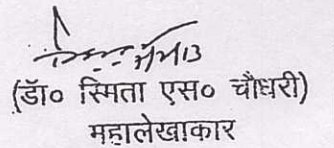 (डॉ० स्मिता एस० चौधरी)
महालेखाकार